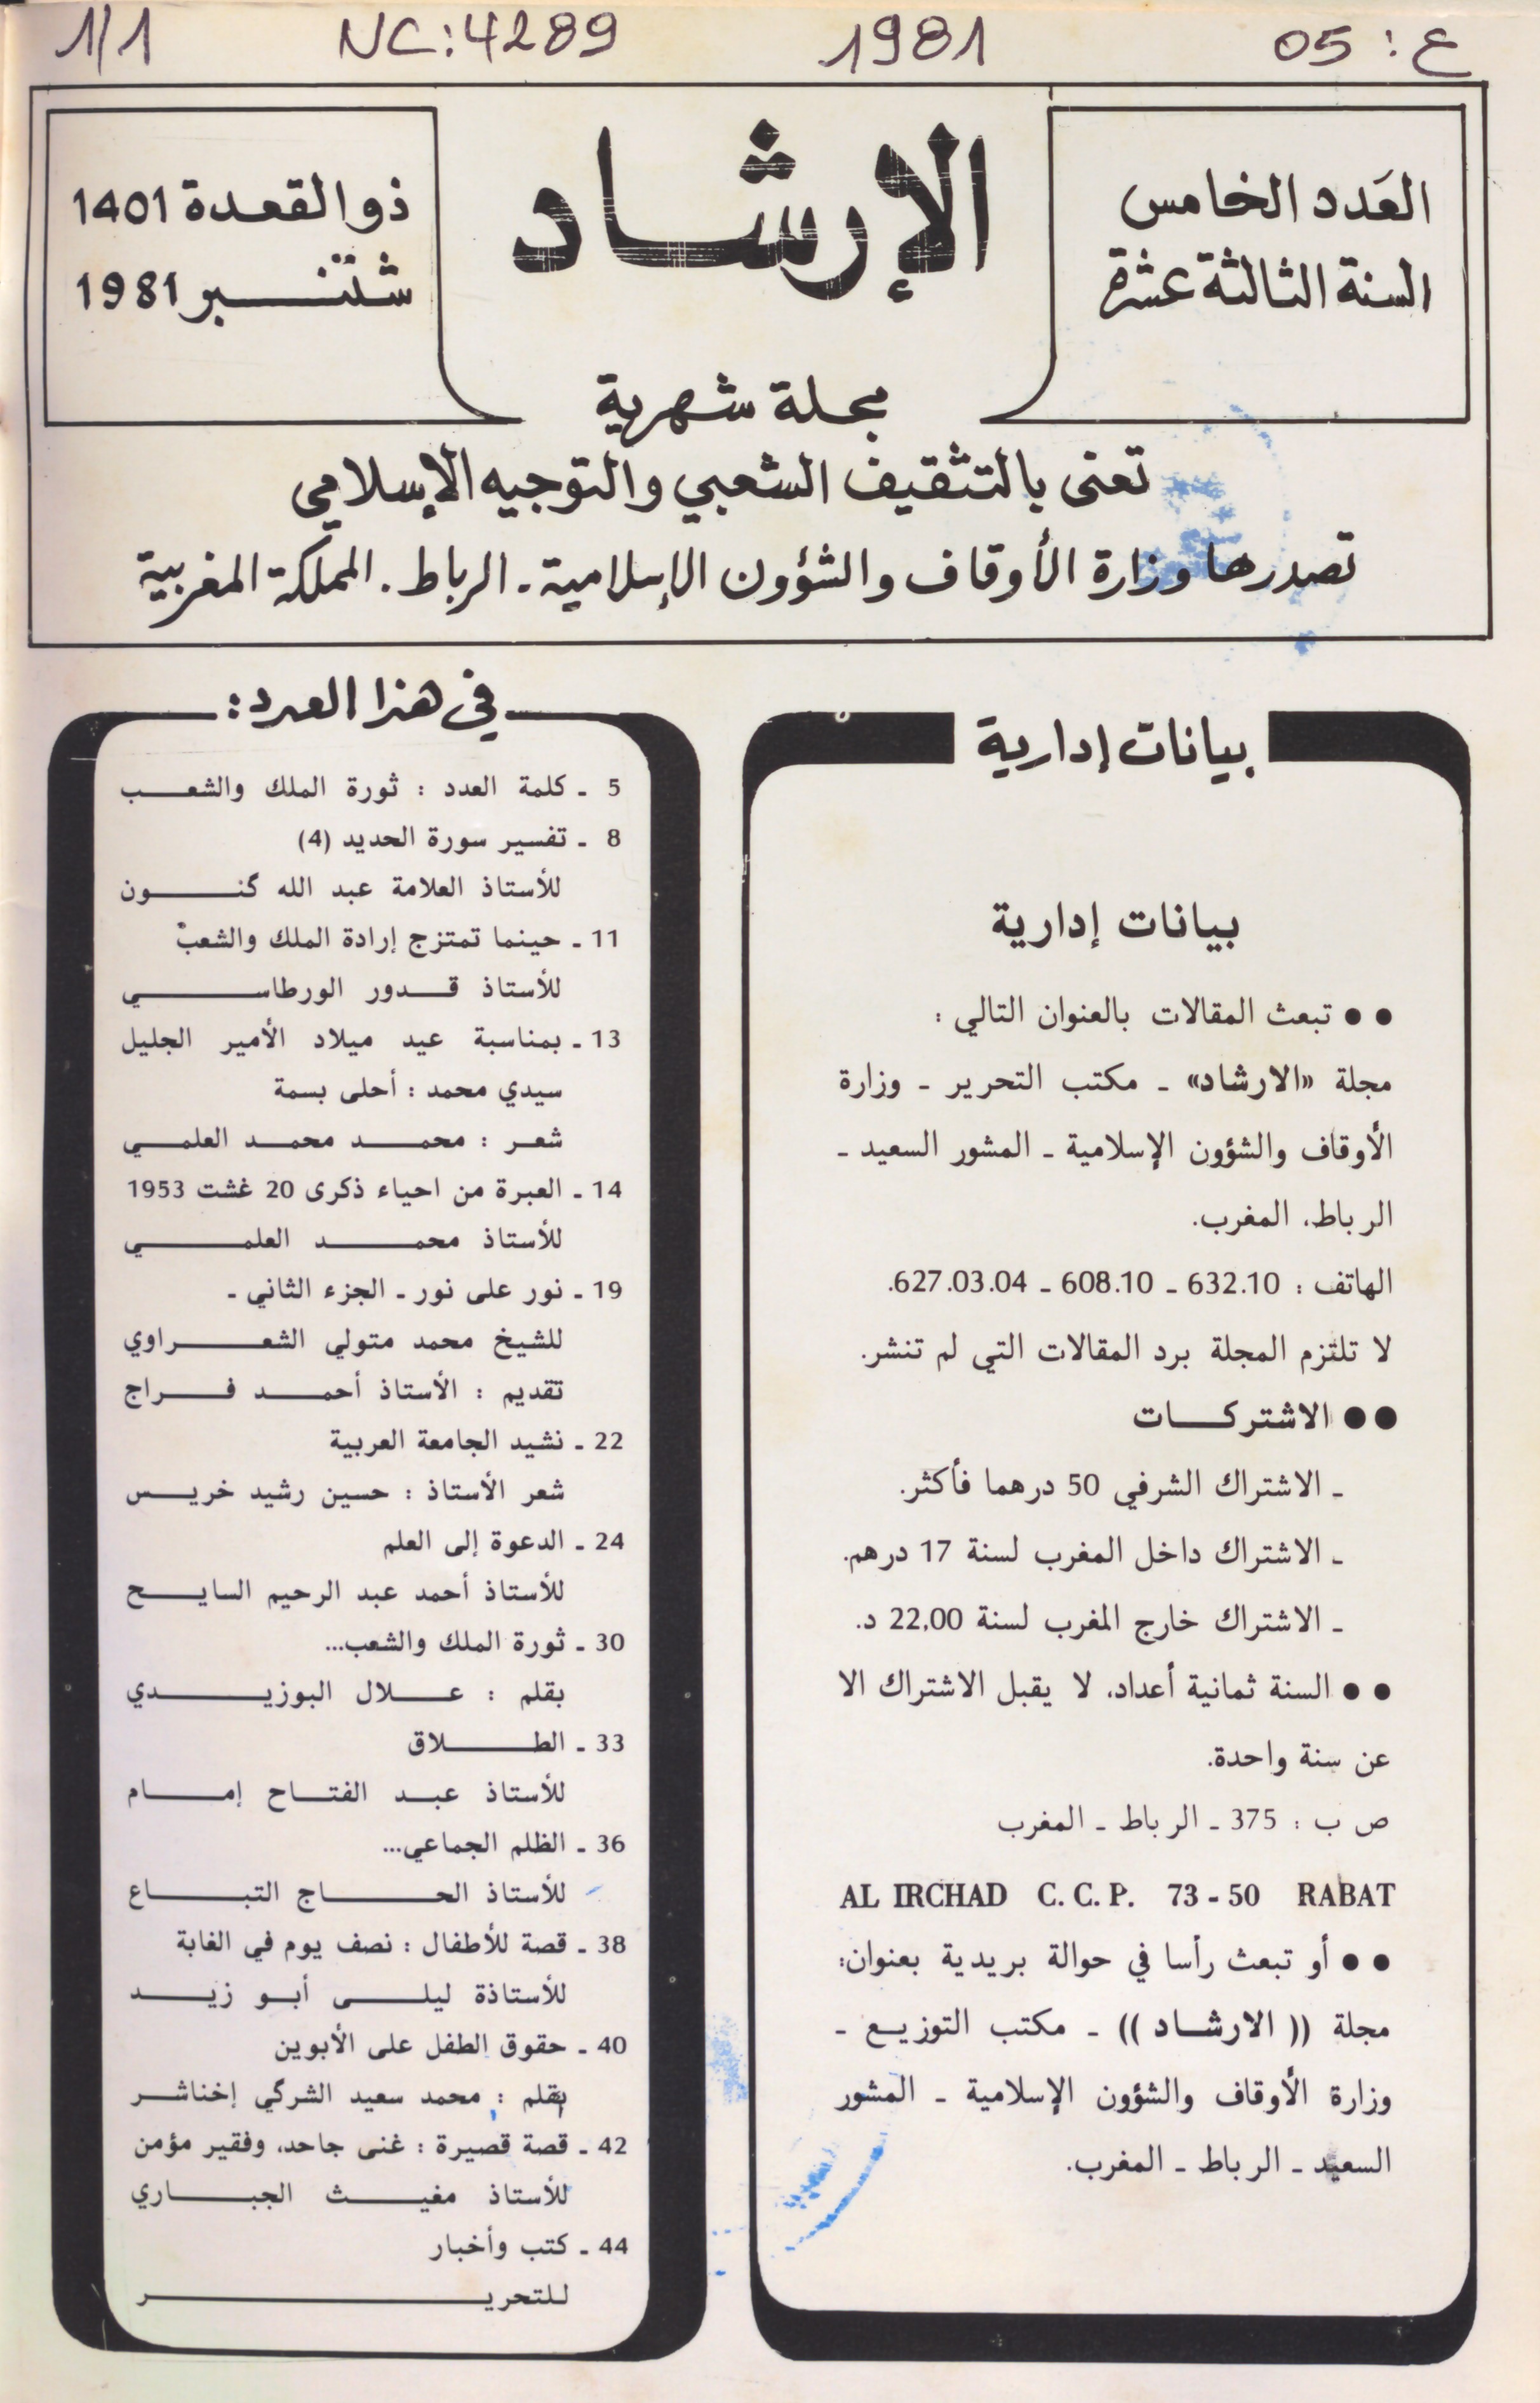 ع : 05
1981
NC:4289
1/1
العدد الخامس
السنة الثالثة عشرة
الإرشاد
ذو القعدة 1401
شتنبر 1981
مجلة شهرية
تعنى بالتثقيف الشعبي والتوجيه الإسلامي
تصدرها وزارة الأوقاف والشؤون الإسلامية - الرباط . المملكة المغربية
بيانات إدارية
بيانات إدارية
●● تبعث المقالات بالعنوان التالي :
مجلة «الارشاد» ـ مكتب التحرير ـ وزارة
الأوقاف والشؤون الإسلامية ـ المشور السعيد ـ
الرباط، المغرب.
الهاتف : 632.10 ـ 608.10 ـ 627.03.04.
لا تلتزم المجلة برد المقالات التي لم تنشر.
●● الاشتركات
ـ الاشتراك الشرفي 50 درهما فأكثر.
ـ الاشتراك داخل المغرب لسنة 17 درهم.
ـ الاشتراك خارج المغرب لسنة 22,00 د.
●● السنة ثمانية أعداد، لا يقبل الاشتراك الا
عن سنة واحدة.
ص ب : 375 ـ الرباط ـ المغرب
AL IRCHAD C. C. P. 73 - 50 RABAT
●● أو تبعث رأسا في حوالة بريدية بعنوان:
مجلة (( الارشاد )) ـ مكتب التوزيع ـ
وزارة الأوقاف والشؤون الإسلامية ـ المشور
السعيد ـ الرباط ـ المغرب.
في هذا العدد :
5 ـ كلمة العدد : ثورة الملك والشعب
8 ـ تفسير سورة الحديد (4)
للأستاذ العلامة عبد الله گنون
11 ـ حينما تمتزج إرادة الملك والشعب
للأستاذ قدور الورطاسي
13 ـ بمناسبة عيد ميلاد الأمير الجليل
سيدي محمد : أحلى بسمة
شعر : محمد محمد العلمي
14 ـ العبرة من احياء ذكرى 20 غشت 1953
للأستاذ محمد العلمي
19 ـ نور على نور ـ الجزء الثاني ـ
للشيخ محمد متولي الشعراوي
تقديم : الأستاذ أحمد فراج
22 ـ نشيد الجامعة العربية
شعر الأستاذ : حسين رشيد خريس
24 ـ الدعوة إلى العلم
للأستاذ أحمد عبد الرحيم السايح
30 ـ ثورة الملك والشعب...
بقلم : علال البوزيدي
33 ـ الطلاق
للأستاذ عبد الفتاح إمام
36 ـ الظلم الجماعي...
للأستاذ الحاج التباع
38 ـ قصة للأطفال : نصف يوم في الغابة
للأستاذة ليلى أبو زيد
40 ـ حقوق الطفل على الأبوين
بقلم : محمد سعيد الشركي إخناشر
42 ـ قصة قصيرة : غنى جاحد، وفقير مؤمن
للأستاذ مغيث الجباري
44 ـ كتب وأخبار
للتحرير